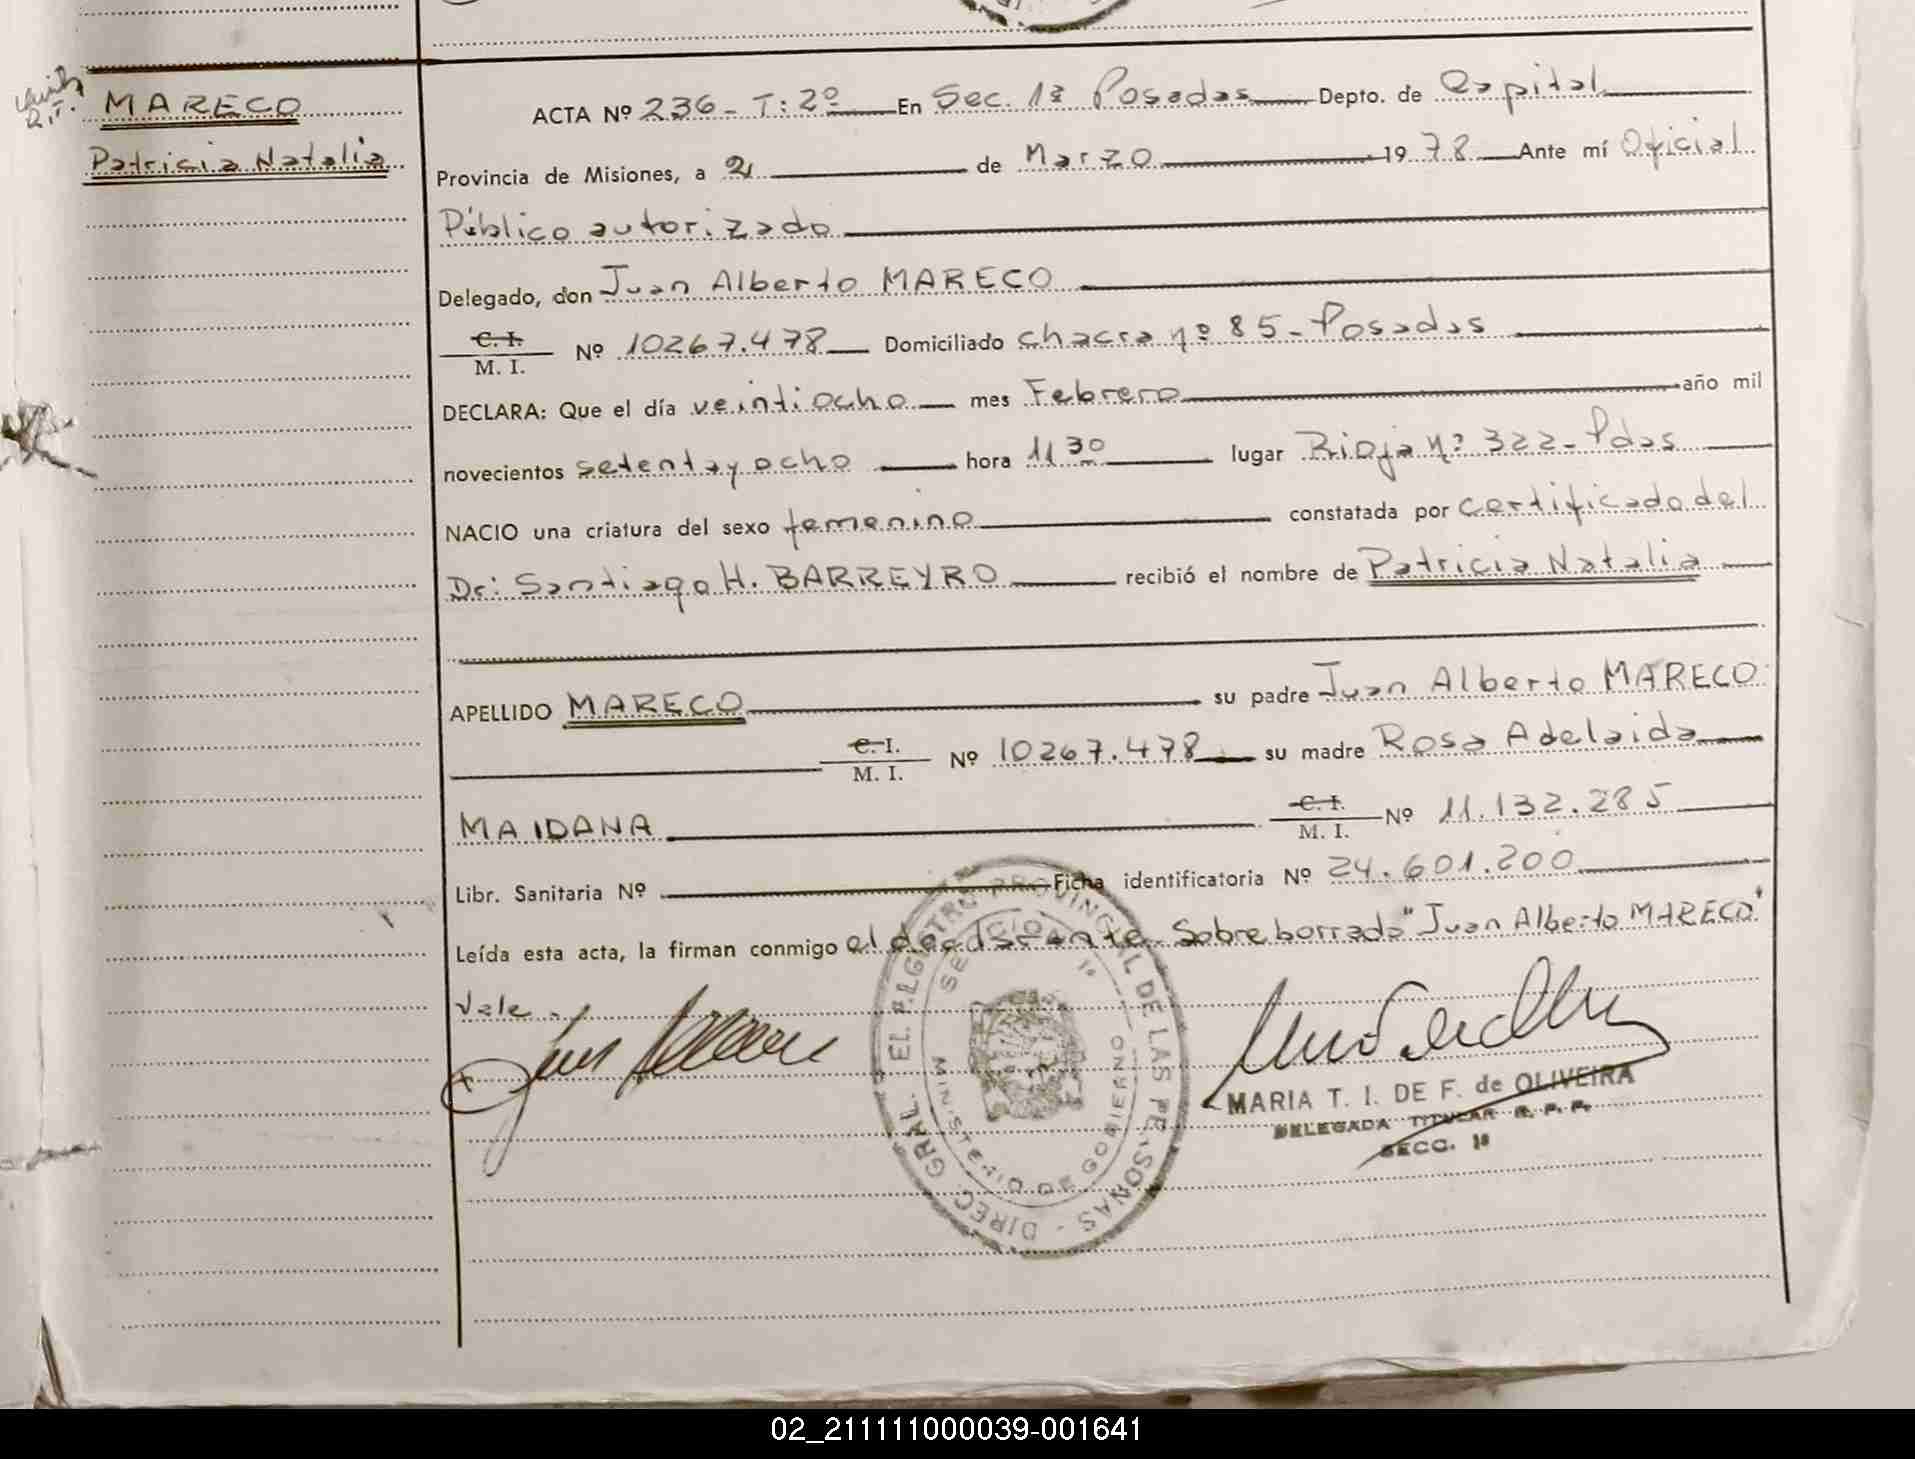 MARECO
Patricia Natalia
ACTA Nº 236 - T: 2º En Sec. 1ª Posadas Depto. de Capital
Provincia de Misiones, a 2 de Marzo 1978 Ante mí Oficial
Público autorizado
Delegado, don Juan Alberto MARECO
C. I.
M. I. Nº 10267.478 Domiciliado chacra nº 85 - Posadas
DECLARA: Que el día veintiocho mes Febrero año mil
novecientos setenta y ocho hora 11 30 lugar Rioja Nº 322 - Pdas
NACIO una criatura del sexo femenino constatada por certificado del
Dr: Santiago H. BARREYRO recibió el nombre de Patricia Natalia
APELLIDO MARECO su padre Juan Alberto MARECO
C. I.
M. I. Nº 10267.478 su madre Rosa Adelaida
MAIDANA C. I.
M. I. Nº 11.132.285
Libr. Sanitaria Nº Ficha identificatoria Nº 24.601.200
Leída esta acta, la firman conmigo el declarante. Sobre borrado "Juan Alberto MARECO"
Vale.
DIREC. GRAL. EL REGISTRO PROVINCIAL DE LAS PERSONAS -
SECCION 1ª
MINISTERIO DE GOBIERNO
MARIA T. I. DE F. de OLIVEIRA
DELEGADA TITULAR R. P. P.
SECC. 1ª
02_211111000039-001641